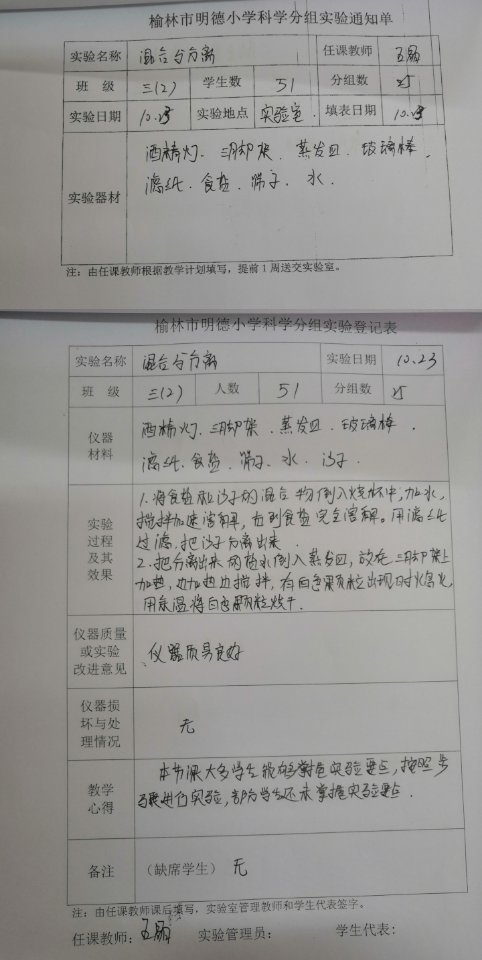 榆林市明德小学科学分组实验通知单
实验名称 混合与分离 任课教师
班 级 三(2) 学生数 51 分组数 25
实验日期 10.23 实验地点 实验室 填表日期 10.23
实验器材
酒精灯、三脚架、蒸发皿、玻璃棒、
滤纸、食盐、筛子、水、
注：由任课教师根据教学计划填写，提前1周送交实验室。
榆林市明德小学科学分组实验登记表
实验名称 混合与分离 实验日期 10.23
班 级 三(2) 人数 51 分组数 25
仪器
材料
酒精灯、三脚架、蒸发皿、玻璃棒、
滤纸、食盐、筛子、水、沙子.
实验
过程
及其
效果
1.将食盐和沙子的混合物倒入烧杯中,加水,
搅拌加速溶解,直到食盐完全溶解。用滤纸
过滤,把沙子分离出来.
2.把分离出来的盐水倒入蒸发皿,放在三脚架上
加热,边加热边搅拌,有白色颗粒出现时火熄灭,
用余温将白色颗粒烧干.
仪器质量
或实验
改进意见
仪器质量良好
仪器损
坏与处
理情况
无
教学
心得
本节课大多学生能够掌握实验要点,按照步
骤进行实验,部分学生还未掌握实验要点.
备注 （缺席学生） 无
注：由任课教师课后填写，实验室管理教师和学生代表签字。
任课教师: 实验管理员: 学生代表: